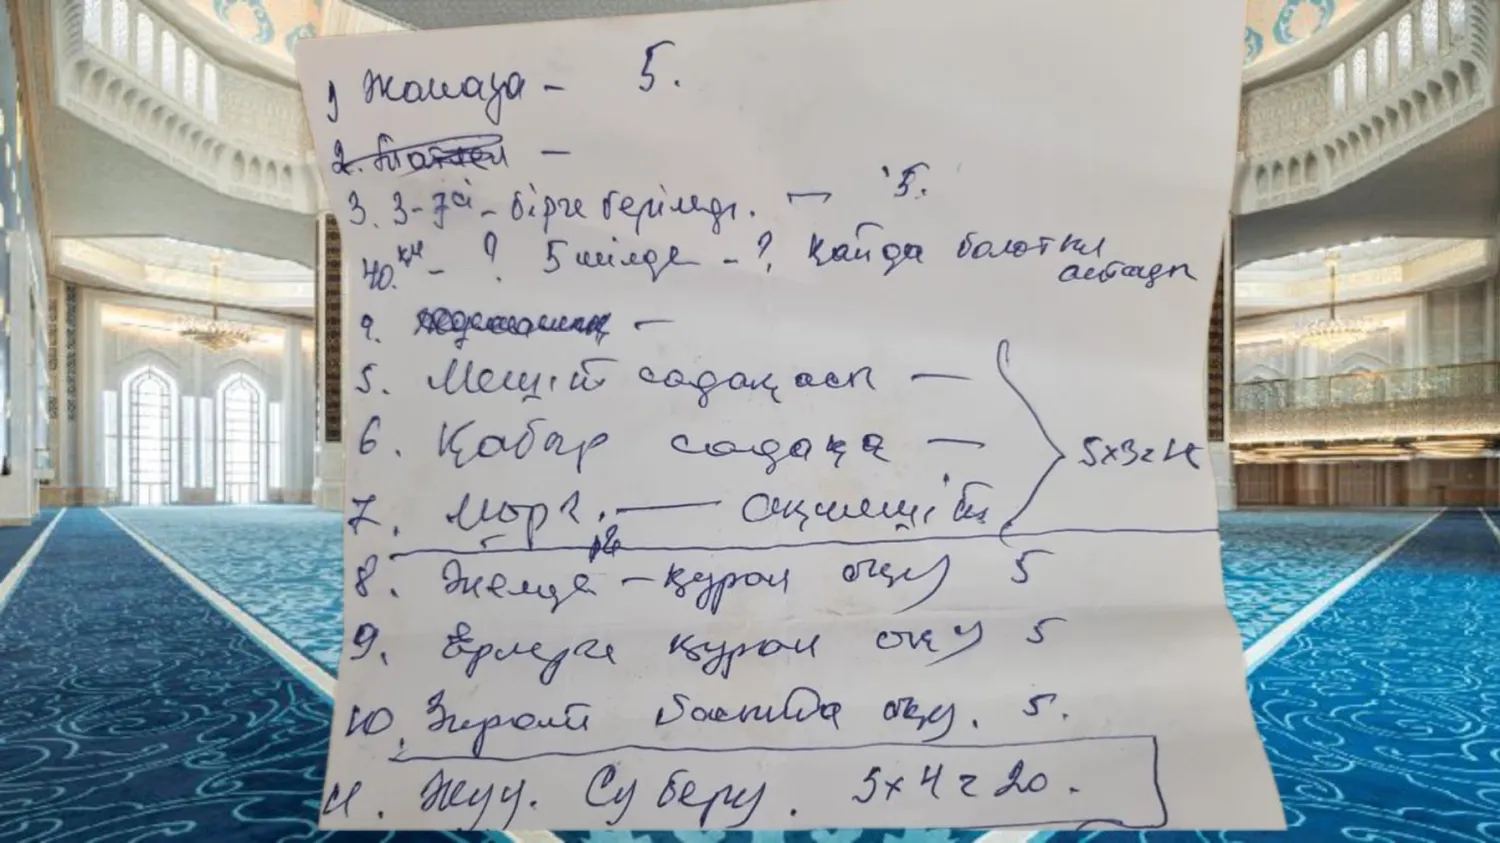 1 Жаназа – 5.
2. –
3. 3-7сі – бірге беріледі. — 5.
40.кы – ? 5 шілде – ? Қайда болатын
айтады
4. –
5. Мешіт садақасы —
6. Қабыр садақа —
7. — ақмешіт 5х3=15
8. – құран оқу 5
9. Ерлерге құран оқу 5
10. Зират басында оқу. 5.
11. Жуу. Су беру. 5х4=20.